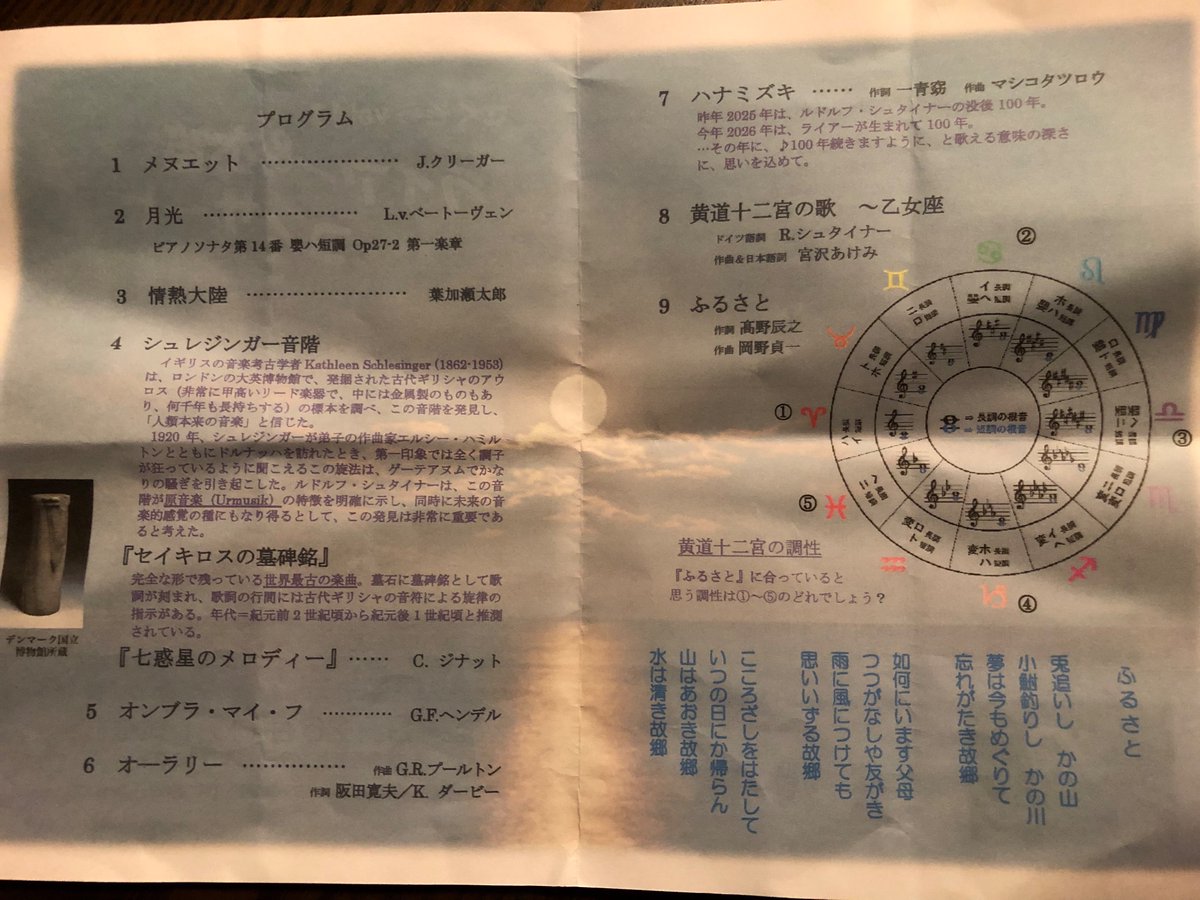 プログラム
1 メヌエット ………………… J.クリーガー
2 月光 ………………… L.v.ベートーヴェン
ピアノソナタ第14番 嬰ハ短調 Op27-2 第一楽章
3 情熱大陸 ………………… 葉加瀬太郎
4 シュレジンガー音階
イギリスの音楽考古学者 Kathleen Schlesinger (1862-1953)
は、ロンドンの大英博物館で、発掘された古代ギリシャのアウ
ロス（非常に甲高いリード楽器で、中には金属製のものもあ
り、何千年も長持ちする）の標本を調べ、この音階を発見し、
「人類本来の音楽」と信じた。
1920年、シュレジンガーが弟子の作曲家エルシー・ハミル
トンとともにドルナッハを訪れたとき、第一印象では全く調子
が狂っているように聞こえるこの旋法は、ゲーテアヌムでかな
りの騒ぎを引き起こした。ルドルフ・シュタイナーは、この音
階が原音楽（Urmusik）の特徴を明確に示し、同時に未来の音
楽的感覚の種にもなり得るとして、この発見は非常に重要であ
ると考えた。
『セイキロスの墓碑銘』
完全な形で残っている世界最古の楽曲。墓石に墓碑銘として歌
詞が刻まれ、歌詞の行間には古代ギリシャの音符による旋律の
指示がある。年代＝紀元前2世紀頃から紀元後1世紀頃と推測
されている。
デンマーク国立
博物館所蔵
『七惑星のメロディー』…… C. ジナット
5 オンブラ・マイ・フ ………… G.F.ヘンデル
6 オーラリー …………… 作曲 G.R.プールトン
作詞 阪田寛夫／K. ダービー
7 ハナミズキ …… 作詞 一青窈 作曲 マシコタツロウ
昨年2025年は、ルドルフ・シュタイナーの没後100年。
今年2026年は、ライアーが生まれて100年。
…その年に、♪100年続きますように、と歌える意味の深さ
に、思いを込めて。
8 黄道十二宮の歌 ～乙女座
ドイツ語詞 R.シュタイナー
作曲＆日本語詞 宮沢あけみ
9 ふるさと
作詞 髙野辰之
作曲 岡野貞一
②
♊ ♋ ♌
♉ ♍
① ♈ ♎ ③
⑤ ♓ ♏
♒ ♑ ♐
④
イ長調
嬰ヘ短調
ホ長調
嬰ハ短調
ロ長調
嬰ト短調
変ニ長調
変ロ短調
変イ長調
ヘ短調
変ホ長調
ハ短調
変ロ長調
ト短調
ヘ長調
ニ短調
ハ長調
イ短調
ト長調
ホ短調
ニ長調
ロ短調
⇒ 長調の根音
⇒ 短調の根音
黄道十二宮の調性
『ふるさと』に合っていると
思う調性は①～⑤のどれでしょう？
ふるさと
兎追いし かの山
小鮒釣りし かの川
夢は今もめぐりて
忘れがたき故郷
如何にいます父母
つつがなしや友がき
雨に風につけても
思いいずる故郷
こころざしをはたして
いつの日にか帰らん
山はあおき故郷
水は清き故郷